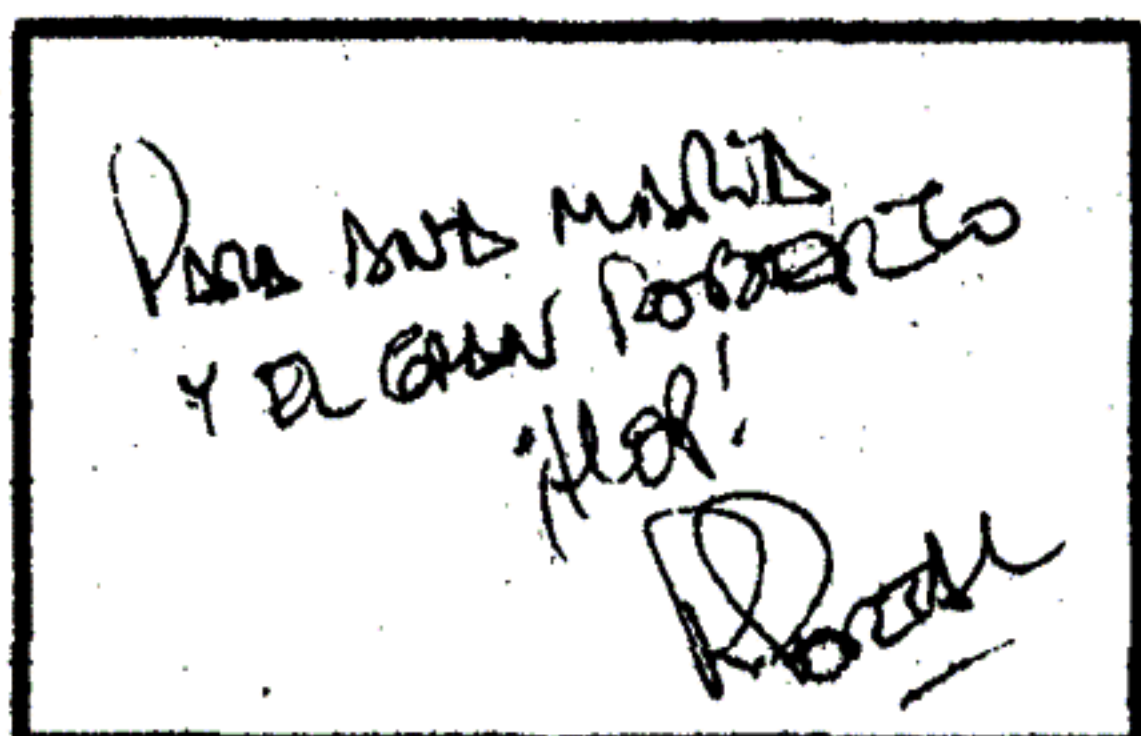 PARA ANA MARIA
Y EL GRAN ROBERTO
¡HOP!